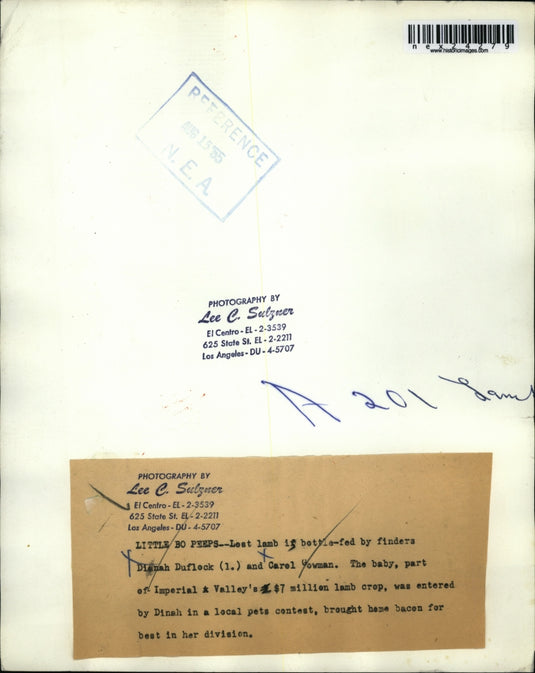 nex24279
www.historicimages.com
REFERENCE
AUG 15 '55
N. E. A.
PHOTOGRAPHY BY
Lee C. Sulzner
El Centro - EL - 2-3539
625 State St. EL - 2-2211
Los Angeles - DU - 4-5707
A 201
PHOTOGRAPHY BY
Lee C. Sulzner
El Centro - EL - 2-3539
625 State St. EL - 2-2211
Los Angeles - DU - 4-5707
LITTLE BO PEEPS--Lost lamb is bottle-fed by finders
Duflock (l.) and Carol The baby, part
of Imperial Valley's $7 million lamb crop, was entered
by Dinah in a local pets contest, brought home bacon for
best in her division.